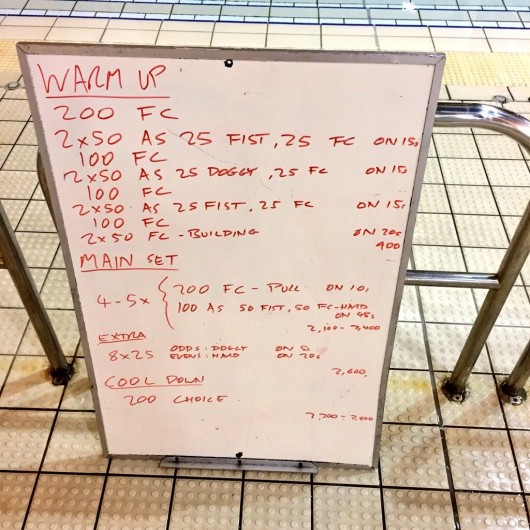 WARM UP
200 FC
2x50 AS 25 FIST, 25 FC ON 15s
100 FC
2x50 AS 25 DOGGY, 25 FC ON 15s
100 FC
2x50 AS 25 FIST, 25 FC ON 15s
100 FC
2x50 FC - BUILDING ON 20s
900
MAIN SET
4-5x { 200 FC - PULL ON 10s
100 AS 50 FIST, 50 FC-HARD
ON 45s
2,100 - 2,400
EXTRA
8x25 ODDS: DOGGY ON 5
EVENS: HARD ON 20s
2,600
COOL DOWN
200 CHOICE